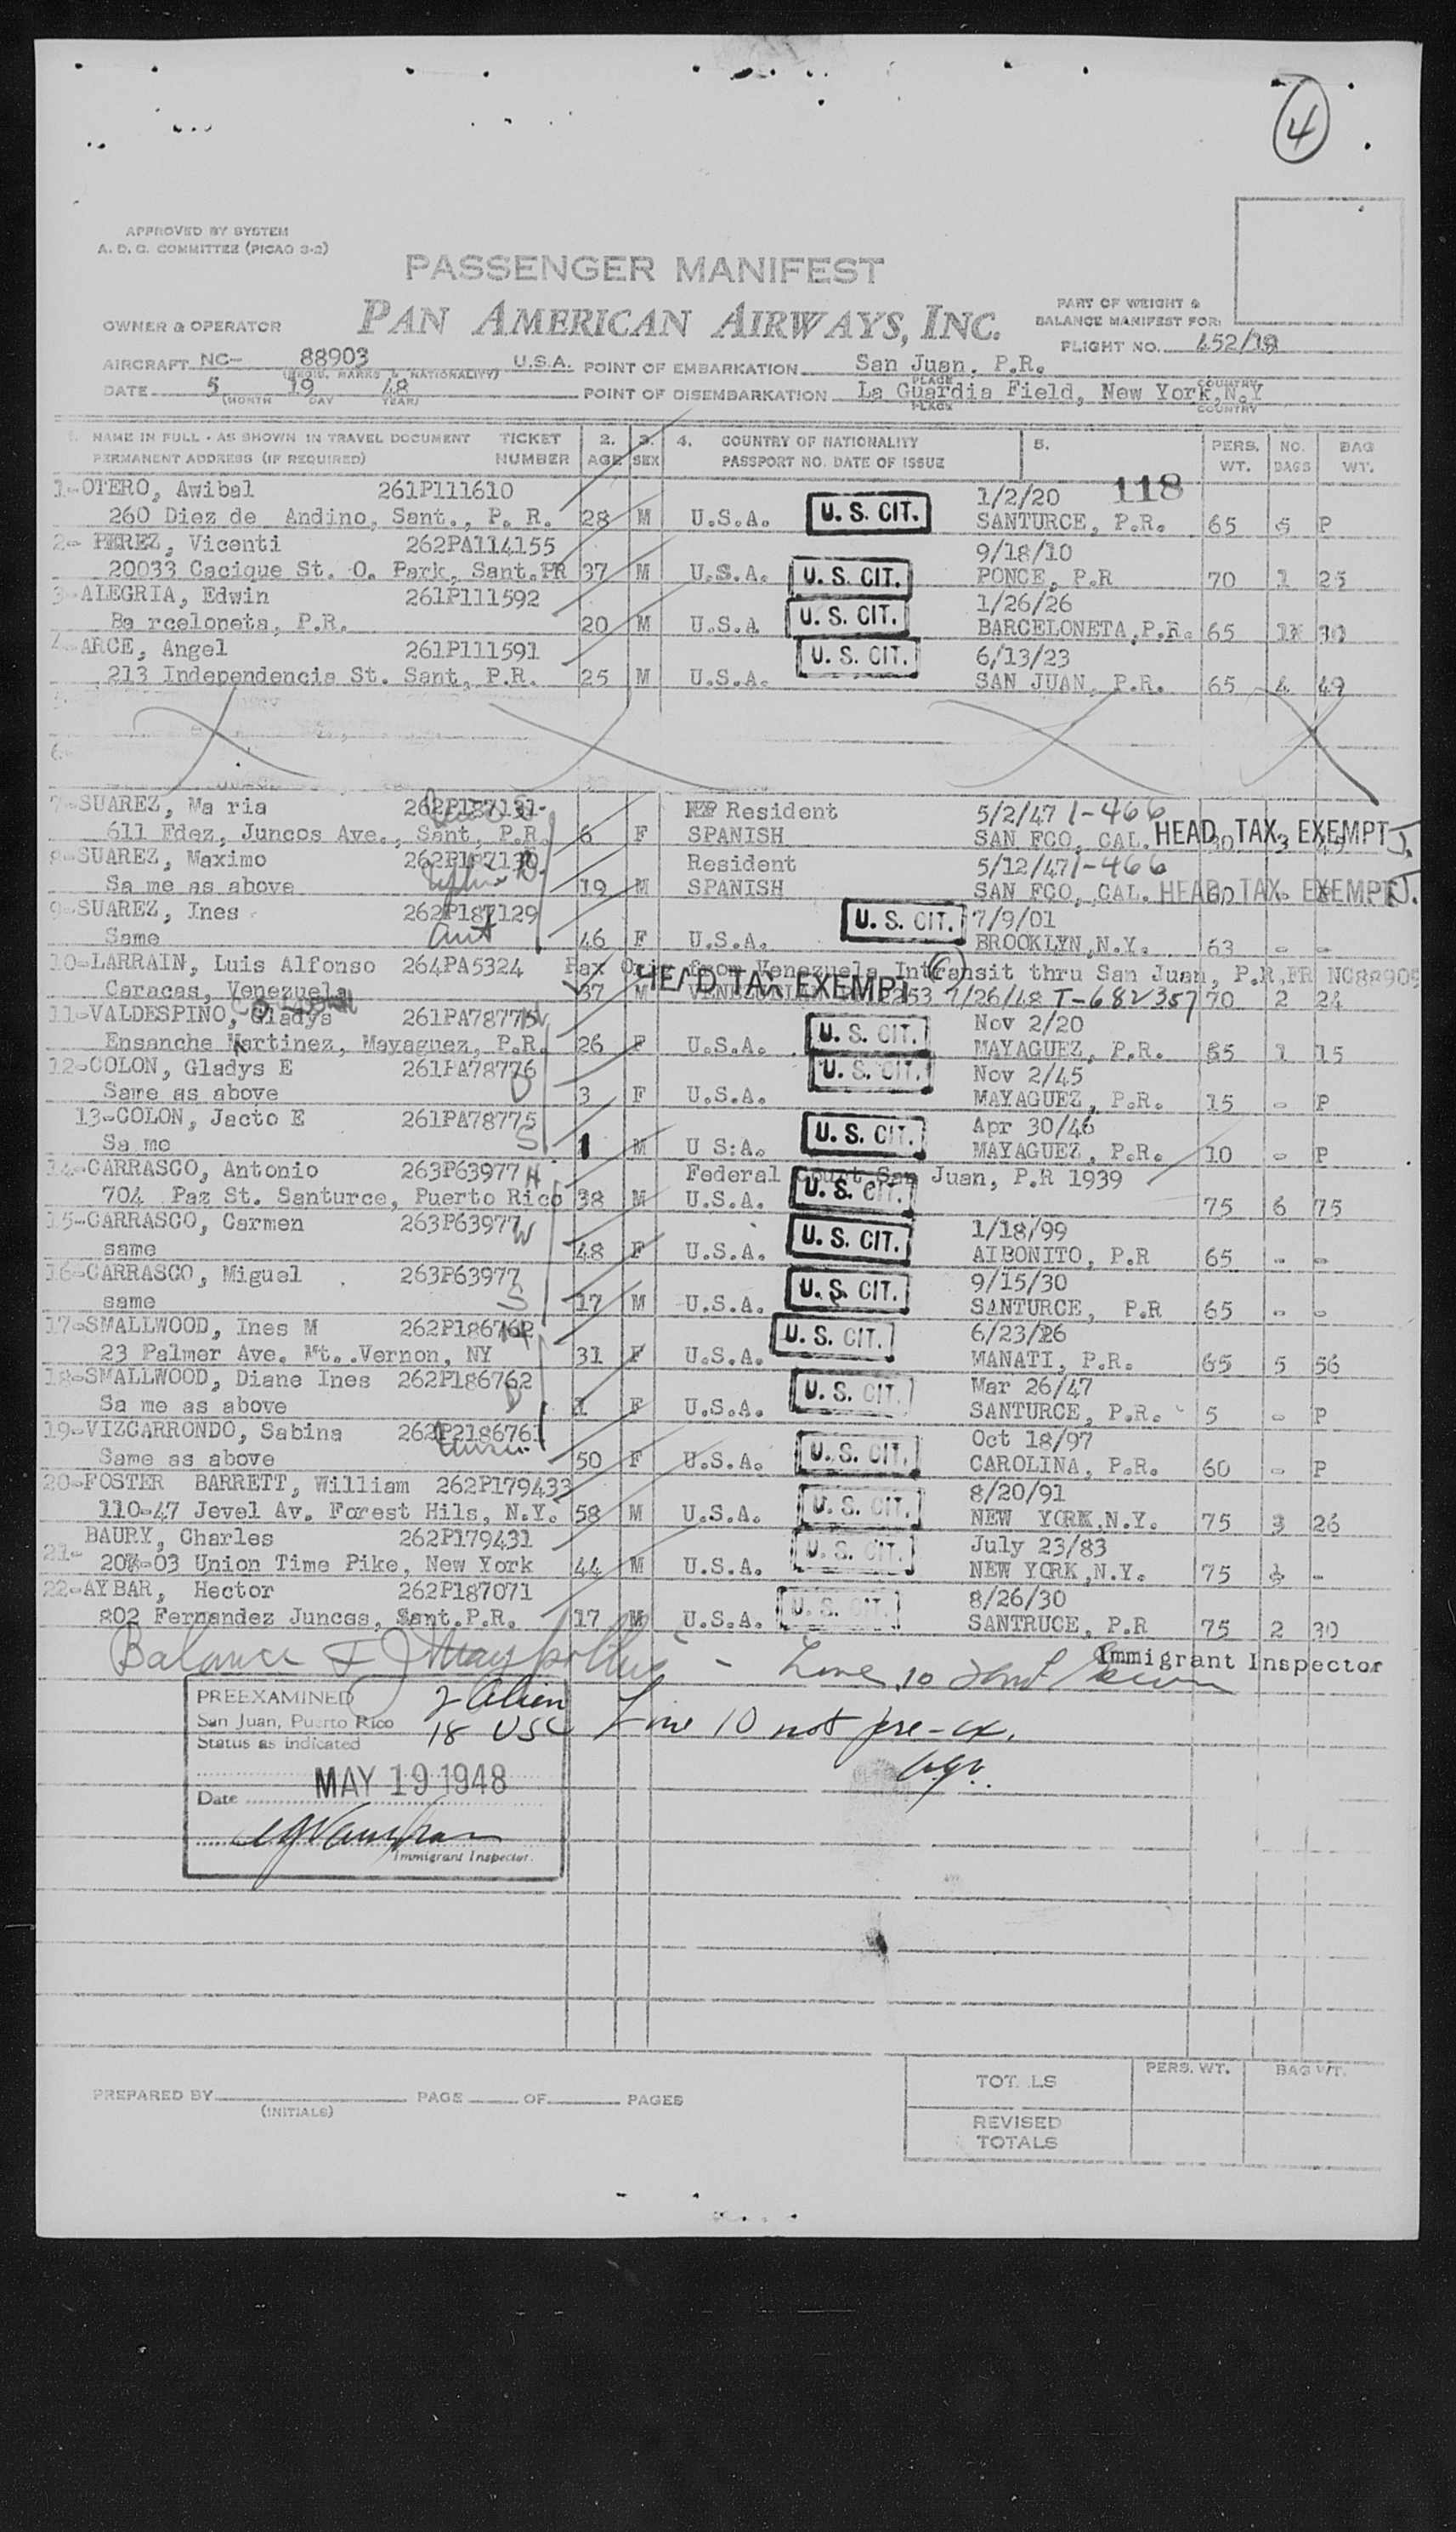 4
APPROVED BY SYSTEM
A. D. C. COMMITTEE (PICAO 3-2)
PASSENGER MANIFEST
PAN AMERICAN AIRWAYS, INC.
PART OF WEIGHT &
BALANCE MANIFEST FOR:
OWNER & OPERATOR
FLIGHT NO. 452/19
AIRCRAFT NC- 88903 U.S.A. POINT OF EMBARKATION San Juan, P.R.
(REGIS. MARKS & NATIONALITY) PLACE COUNTRY
DATE 5 19 48 POINT OF DISEMBARKATION La Guardia Field, New York, N.Y
(MONTH DAY YEAR) PLACE COUNTRY
1. NAME IN FULL - AS SHOWN IN TRAVEL DOCUMENT TICKET 2. 3. 4. COUNTRY OF NATIONALITY 5. PERS. NO. BAG
PERMANENT ADDRESS (IF REQUIRED) NUMBER AGE SEX PASSPORT NO. DATE OF ISSUE WT. BAGS WT.
1-OTERO, Awibal 261P111610 1/2/20 118
260 Diez de Andino, Sant., P. R. 28 M U.S.A. U. S. CIT. SANTURCE, P.R. 65 5 P
2- PEREZ, Vicenti 262PA114155 9/18/10
20033 Cacique St. O. Park, Sant.PR 37 M U.S.A. U. S. CIT. PONCE, P.R 70 1 25
3-ALEGRIA, Edwin 261P111592 1/26/26
Ba rceloneta, P.R. 20 M U.S.A U. S. CIT. BARCELONETA,P.R. 65 30
4-ARCE, Angel 261P111591 6/13/23
213 Independencia St. Sant, P.R. 25 M U.S.A. U. S. CIT. SAN JUAN, P.R. 65 4 49
5-
6-
7-SUAREZ, Ma ria 262P187131 Resident 5/2/47 1-466
611 Fdez, Juncos Ave., Sant, P.R. 6 F SPANISH SAN FCO, CAL. HEAD TAX EXEMPT J.
8-SUAREZ, Maximo 262P187130 Resident 5/12/47 1-466
Sa me as above 19 M SPANISH SAN FCO, CAL. HEAD TAX EXEMPT J.
9-SUAREZ, Ines 262P187129 U. S. CIT. 7/9/01
Same Aunt 46 F U.S.A. BROOKLYN,N.Y. 63 - -
10-LARRAIN, Luis Alfonso 264PA5324 Pax Orig from Venezuela Intransit thru San Juan, P.R.FR NC88905
Caracas, Venezuela 37 M HEAD TAX EXEMPT 7/26/48 T-682357 70 2 24
11-VALDESPINO, Gladys 261PA78775 Nov 2/20
Ensanche Martinez, Mayaguez, P.R. 26 F U.S.A. U. S. CIT. MAYAGUEZ, P.R. 85 1 15
12-COLON, Gladys E 261PA78776 Nov 2/45
Same as above D 3 F U.S.A. U. S. CIT. MAYAGUEZ, P.R. 15 - P
13-COLON, Jacto E 261PA78775 Apr 30/46
Sa me S 1 M U S:A. U. S. CIT. MAYAGUEZ, P.R. 10 - P
14-CARRASCO, Antonio 263P63977 H Federal Court San Juan, P.R 1939
704 Paz St. Santurce, Puerto Rico 38 M U.S.A. U. S. CIT. 75 6 75
15-CARRASCO, Carmen 263P63977 W 1/18/99
same 48 F U.S.A. U. S. CIT. AIBONITO, P.R 65 - -
16-CARRASCO, Miguel 263P63977 9/15/30
same S 17 M U.S.A. U. S. CIT. SANTURCE, P.R 65 - -
17-SMALLWOOD, Ines M 262P186762 6/23/26
23 Palmer Ave. Mt..Vernon, NY 31 F U.S.A. U. S. CIT. MANATI, P.R. 65 5 56
18-SMALLWOOD, Diane Ines 262P186762 Mar 26/47
Sa me as above D 1 F U.S.A. U. S. CIT. SANTURCE, P.R. 5 - P
19-VIZCARRONDO, Sabina 262P2186761 Oct 18/97
Same as above 50 F U.S.A. U. S. CIT. CAROLINA, P.R. 60 - P
20-FOSTER BARRETT, William 262P179433 8/20/91
110-47 Jevel Av. Forest Hils, N.Y. 58 M U.S.A. U. S. CIT. NEW YORK.N.Y. 75 3 26
BAURY, Charles 262P179431 July 23/83
21- 207-03 Union Time Pike, New York 44 M U.S.A. U. S. CIT. NEW YORK,N.Y. 75 -
22-AYBAR, Hector 262P187071 8/26/30
802 Fernandez Juncos, Sant.P.R. 17 M U.S.A. U. S. CIT. SANTRUCE, P.R 75 2 30
Balance - Line 10
Immigrant Inspector
PREEXAMINED 2 Alien
San Juan, Puerto Rico 18 USC Line 10 not pre-ex.
Status as indicated
Date MAY 19 1948
Immigrant Inspector.
PREPARED BY PAGE OF PAGES
(INITIALS)
PERS. WT. BAG WT.
TOT. LS
REVISED
TOTALS